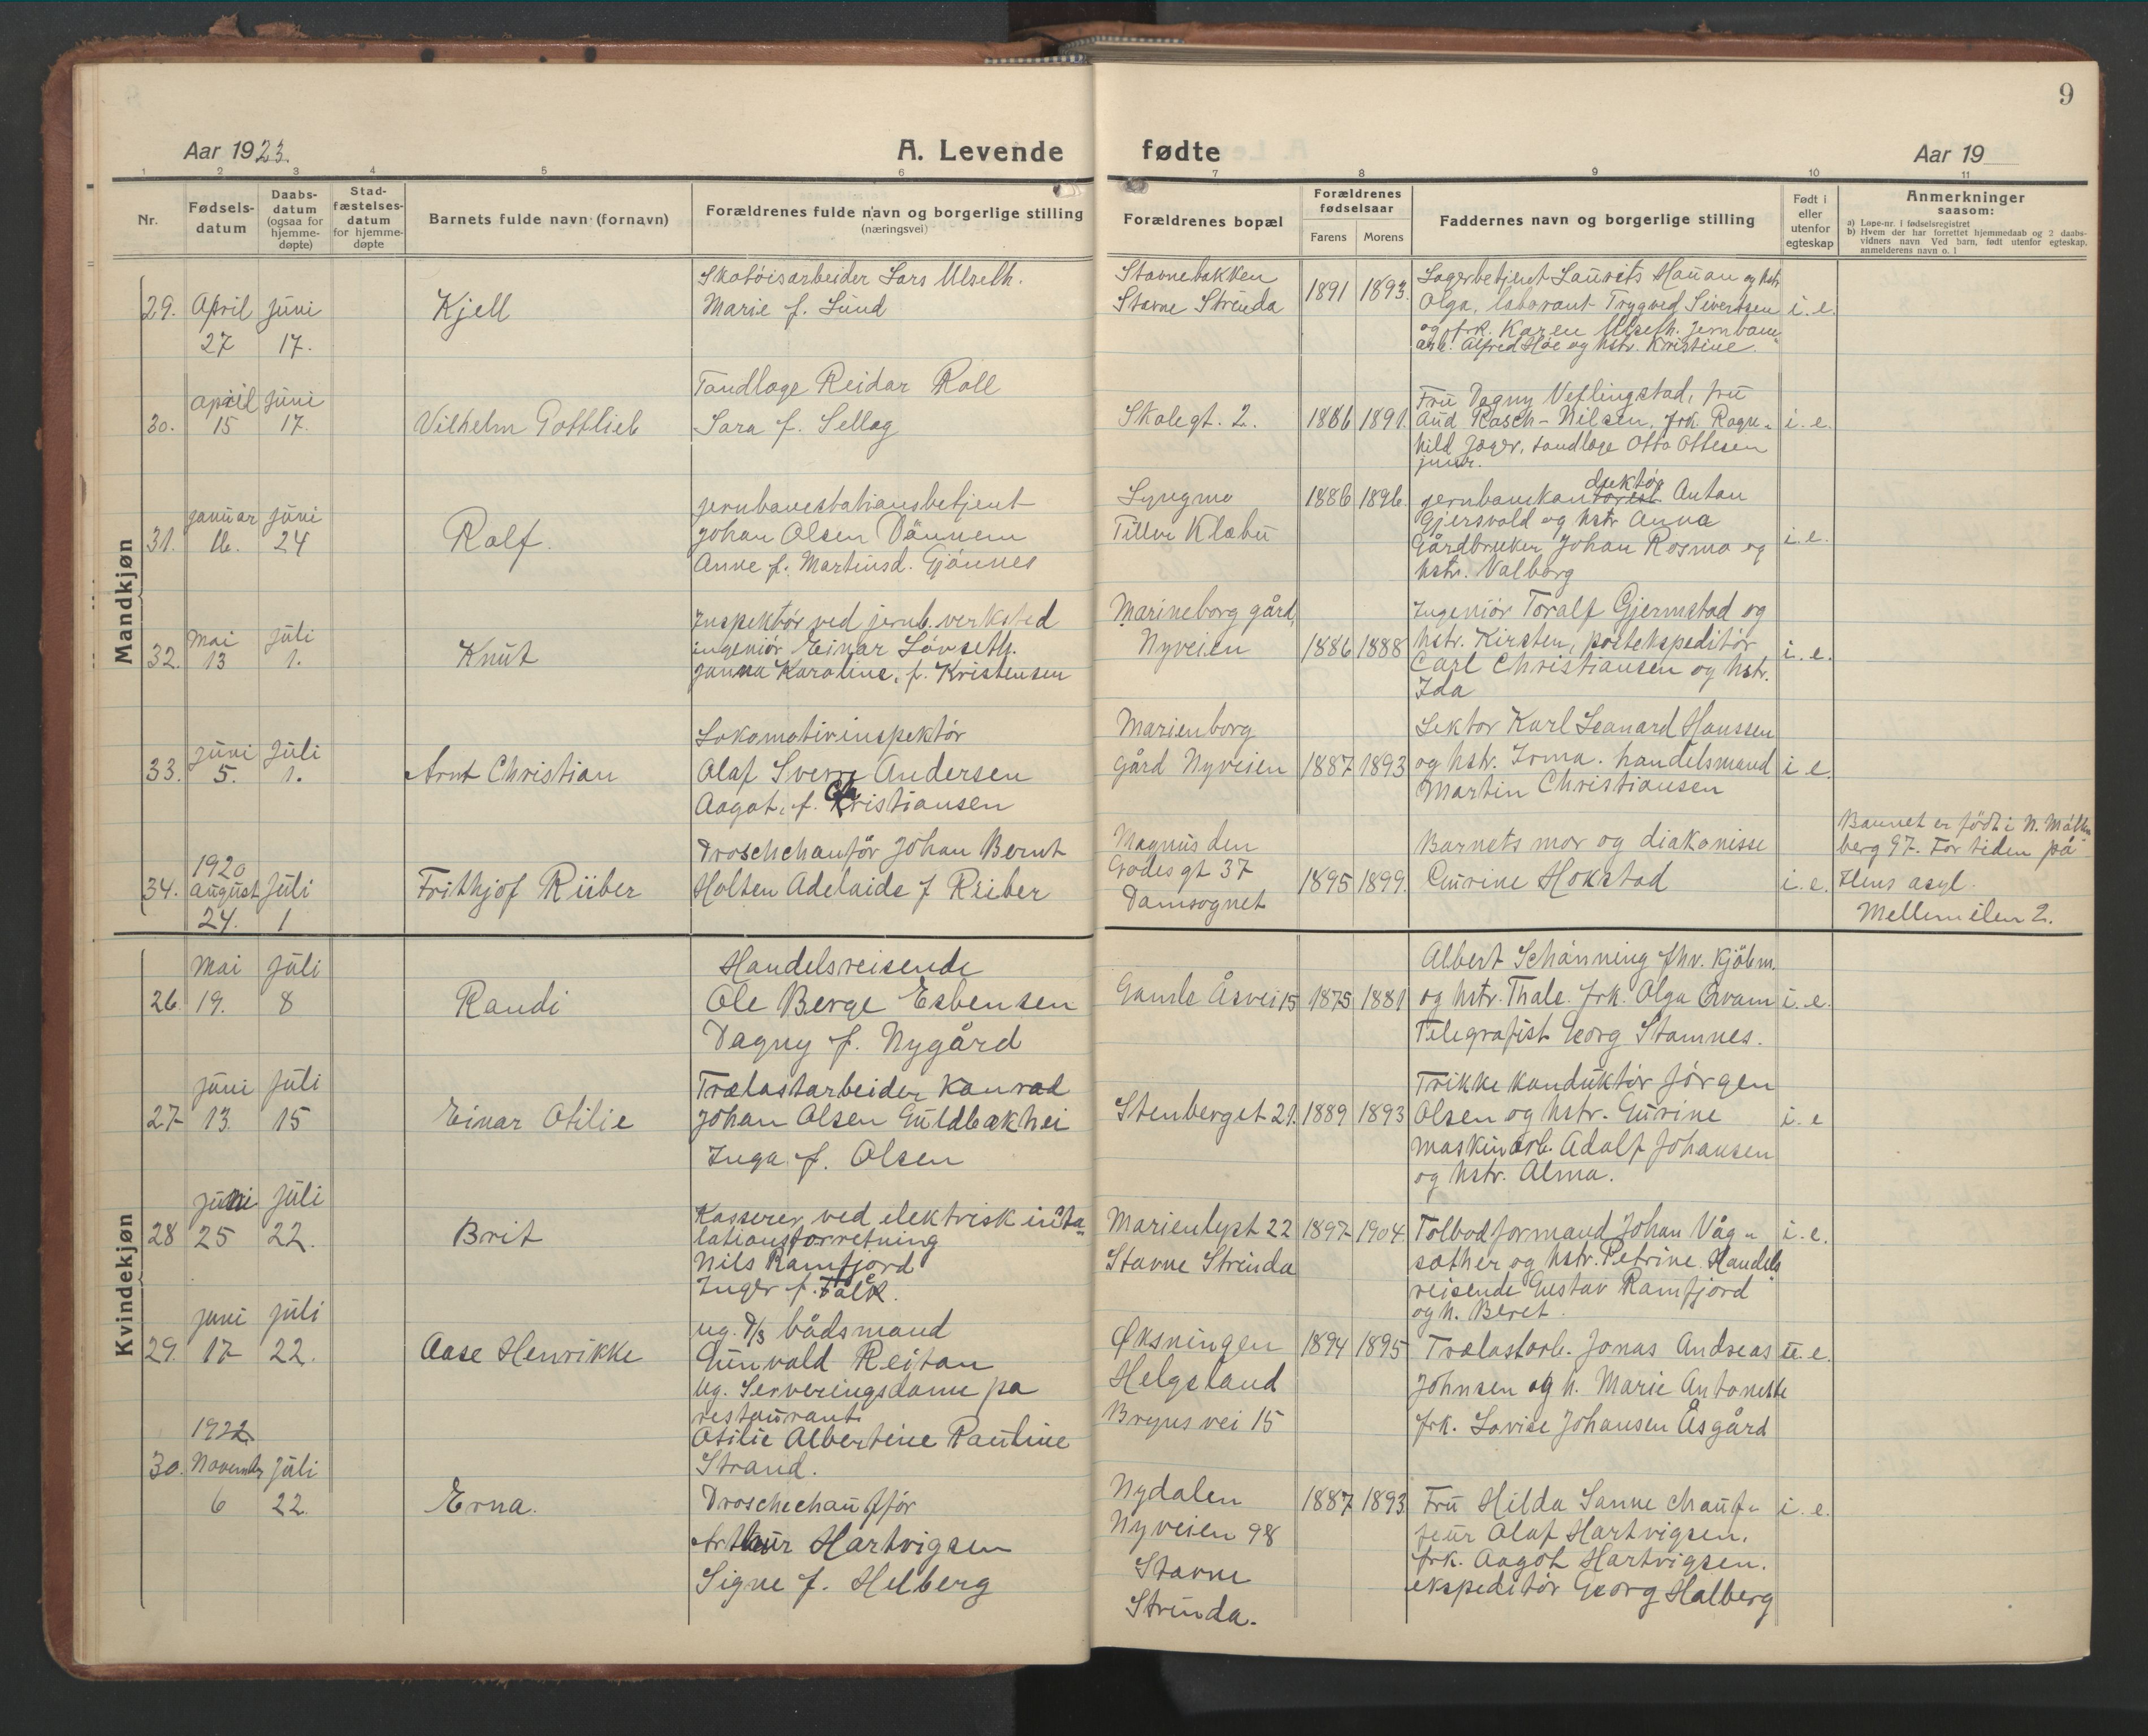 9
Aar 1923.
A. Levende fødte
Aar 19
1 2 3 4 5 6 7 8 9 10 11
Nr.
Fødsels-
datum
Daabs-
datum
(ogsaa for
hjemme-
døpte)
Stad-
fæstelses-
datum
for hjemme-
døpte
Barnets fulde navn (fornavn)
Forældrenes fulde navn og borgerlige stilling
(næringsvei)
Forældrenes bopæl
Forældrenes
fødselsaar
Farens Morens
Faddernes navn og borgerlige stilling
Født i
eller
utenfor
egteskap
Anmerkninger
saasom:
a) Løpe-nr. i fødselsregistret
b) Hvem der har forrettet hjemmedaab og 2 daabs-
vidners navn Ved barn, født utenfor egteskap,
anmelderens navn o. l
Mandkjøn
29.
April
27
juni
17.
Kjell
Skotøisarbeider Lars Ulseth.
Marie f. Lund
Stavnebakken
Stavne Strinda
1891
1893.
Lagerbetjent Laurits Hauan og hstr
Olga, laborant Trygved Sivertsen
og frk. Karen Ulseth. Jernbane
arb. Alfred Hoe og hstr. Kristine.
i. e.
30.
april
15
juni
17.
Vilhelm Gottlieb
Tandlæge Reidar Roll
Sara f. Sellæg
Skolegt. 2.
1886
1891.
Fru Dagny Veflingstad, fru
Aud Rasch-Nilsen, frk. Ragn-
hild Jæger, tandlæge Otto Ottesen
junr.
i. e.
31.
januar
16.
juni
24
Rolf.
jernbanestationsbetjent
Johan Olsen Vännem
Anne f. Martinsd. Gjönnes
Lyngmo
Tiller Klæbu
1886
1896.
jernbanekonduktør Anton
Gjersvold og hstr Anna
Gårdbruker Johan Rosmo og
hstr. Valborg
i. e.
32.
Mai
13
juli
1.
Knut
Inspektör ved jernb. verksted
ingeniör Einar Lövseth.
Janna Karoline, f. Kristensen
Marineborg gård,
Nyveien
1886
1888
Ingeniör Toralf Gjermstad og
hstr. Kirsten, postekspeditör
Carl Christiansen og hstr.
Ida
i. e.
33.
juni
5.
Juli
1.
Arnt Christian
Lokomotivinspektör
Olaf Sverre Andersen
Aagot, f. Christiansen
Marienborg
gård Nyveien
1887
1893
Lektor Karl Leonard Hanssen
og hstr. Irma. handelsmand
Martin Christiansen
i e.
34.
1920
august
24.
Juli
1
Frithjof Riiber
Droschchauför Johan Bernt
Holten Adelaide f Reiber
Magnus den
Godes gt 37
Damsognet
1895
1899.
Barnets mor og diakonisse
Gurine Hokstad
i. e.
Barnet er född i N. Möllen
berg 97. For tiden på
Ilens asyl.
Mellemilen 2.
Kvindekjøn
26
Mai
19.
Juli
8
Randi
Handelsreisende
Ole Berge Esbensen
Dagny f. Nygård
Gamle Åsvei 15
1875
1881
Albert Schönning fhv. Kjöbm.
og hstr. Thale. frk. Olga Qvam
Telegrafist Georg Stamnes.
i. e.
27
juni
13.
Juli
15
Einar Otilie
Trælastarbeider Konrad
Johan Olsen Guldbakhei
Inga f. Olsen
Stenberget 21.
1889
1893
Trikkekonduktör Jörgen
Olsen og hstr. Gurine
maskinarb. Adolf Johansen
og hstr. Alma.
i. e
28
juni
25
juli
22.
Brit
Kasserer ved elektrisk insta-
lationsforretning
Nils Ramfjord
Inger f. Falk.
Marienlyst 22
Stavne Strinda
1897
1904.
Tolbodformand Johan Våg-
sæther og hstr. Petrine. Handels
reisende Gustav Ramfjord
og h. Beret.
i. e.
29.
juni
17
juli
22.
Aase Henrikke
ug. D/S bådsmand
Gunvald Reitan
Ug. Serveringsdame pa
restaurant
Otilie Albertine Pauline
Strand.
Øksningen
Helgeland
Bryns vei 15
1894
1895
Trælastarb. Jonas Andreas
Johnsen og h. Marie Antonette
frk. Lovise Johansen Åsgård
u. e.
30.
1922
November
6
juli
22.
Erna.
Droschechauffør
Arthur Hartvigsen
Signe f. Helberg
Nydalen
Nyveien 98
Stavne
Strinda.
1887
1893.
Fru Hilda Sanne chauf-
feur Olaf Hartvigsen.
frk. Aagot Hartvigsen.
ekspeditör Georg Halberg
i. e.